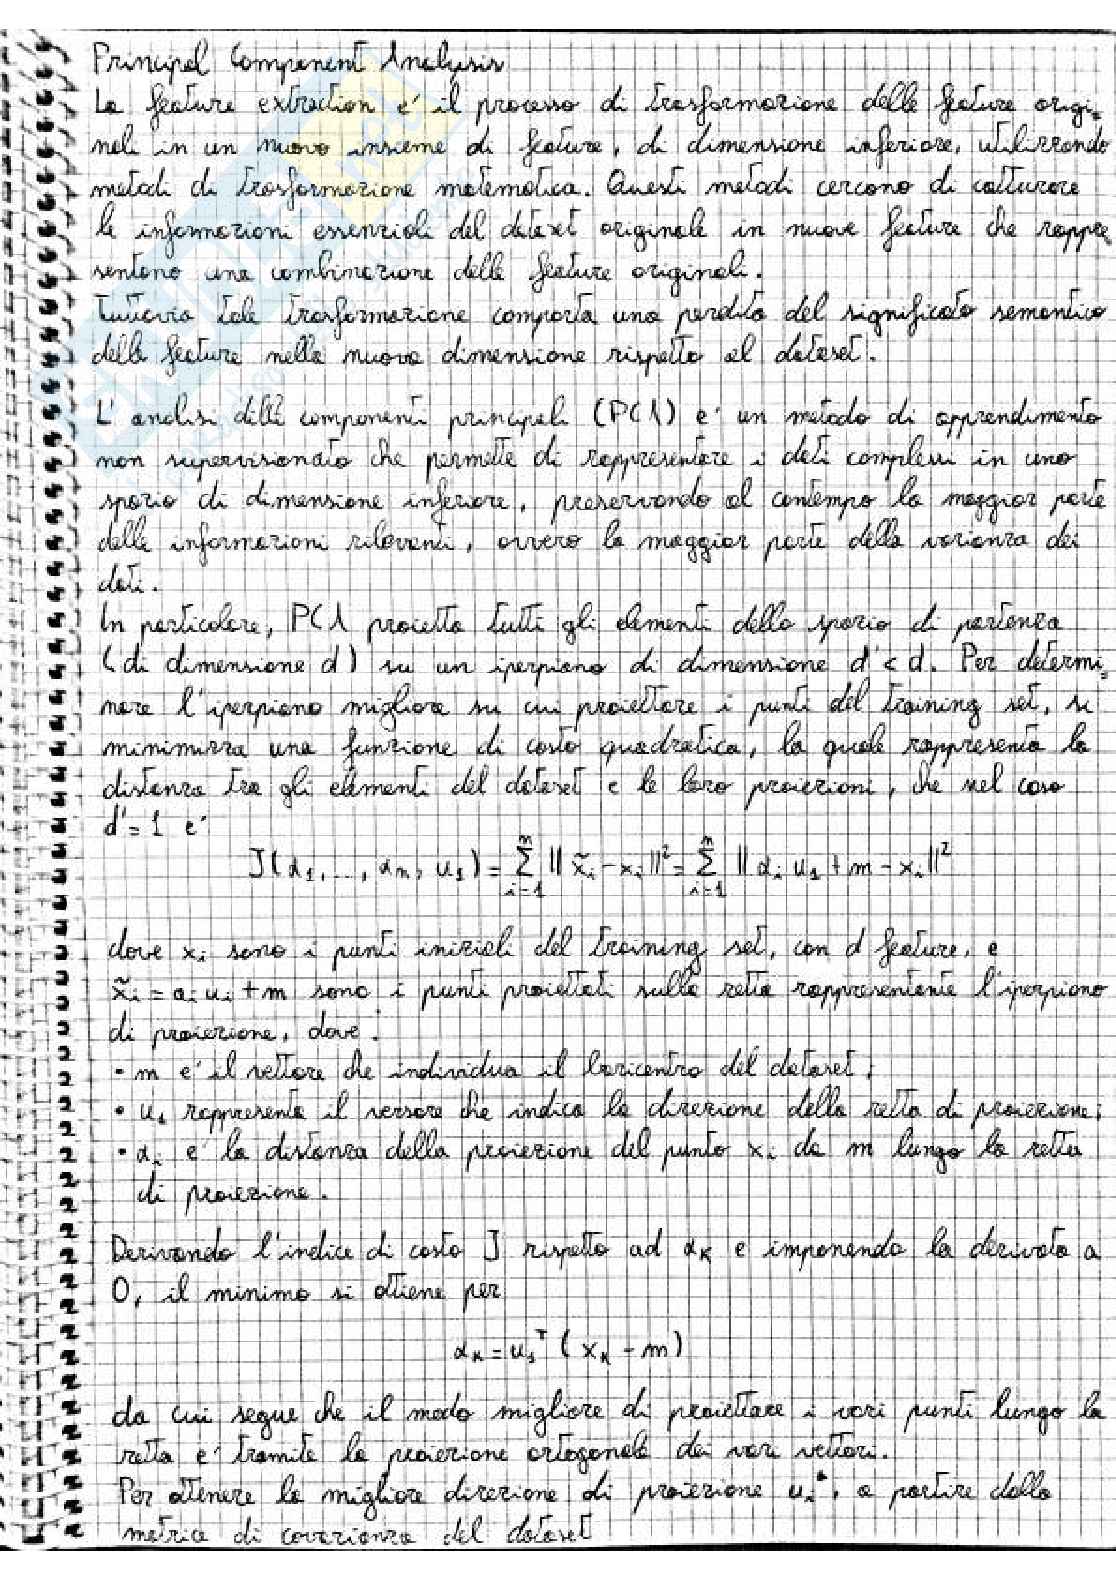 Principal Component Analysis
La feature extraction e' il processo di trasformazione delle feature origi=
nali in un nuovo insieme di feature, di dimensione inferiore, utilizzando
metodi di trasformazione matematica. Questi metodi cercano di catturare
le informazioni essenziali del dataset originale in nuove feature che rappre
sentano una combinazione delle feature originali.
Tuttavia tale trasformazione comporta una perdita del significato semantico
delle feature nella nuova dimensione rispetto al dataset.
L'analisi delle componenti principali (PCA) e' un metodo di apprendimento
non supervisionato che permette di rappresentare i dati complessi in uno
spazio di dimensione inferiore, preservando al contempo la maggior parte
delle informazioni rilevanti, ovvero la maggior parte della varianza dei
dati.
In particolare, PCA proietta tutti gli elementi dello spazio di partenza
(di dimensione d) su un iperpiano di dimensione d' < d. Per determi=
nare l'iperpiano migliore su cui proiettare i punti del training set, si
minimizza una funzione di costo quadratica, la quale rappresenta la
distanza tra gli elementi del dataset e le loro proiezioni, che nel caso
d' = 1 e'
J(α₁, ..., αₙ, u₁) = Σᵢ₌₁ⁿ || x̃ᵢ - xᵢ ||² = Σᵢ₌₁ⁿ || αᵢ u₁ + m - xᵢ ||²
dove xᵢ sono i punti iniziali del training set, con d feature, e
x̃ᵢ = aᵢ uᵢ + m sono i punti proiettati sulla retta rappresentante l'iperpiano
di proiezione, dove:
• m e' il vettore che individua il baricentro del dataset;
• u₁ rappresenta il versore che indica la direzione della retta di proiezione;
• αᵢ e' la distanza della proiezione del punto xᵢ da m lungo la retta
di proiezione.
Derivando l'indice di costo J rispetto ad αₖ e imponendo la derivata a
0, il minimo si ottiene per
αₖ = u₁ᵀ (xₖ - m)
da cui segue che il modo migliore di proiettare i vari punti lungo la
retta e' tramite la proiezione ortogonale dei vari vettori.
Per ottenere la migliore direzione di proiezione uᵢ*, a partire dalla
matrice di covarianza del dataset